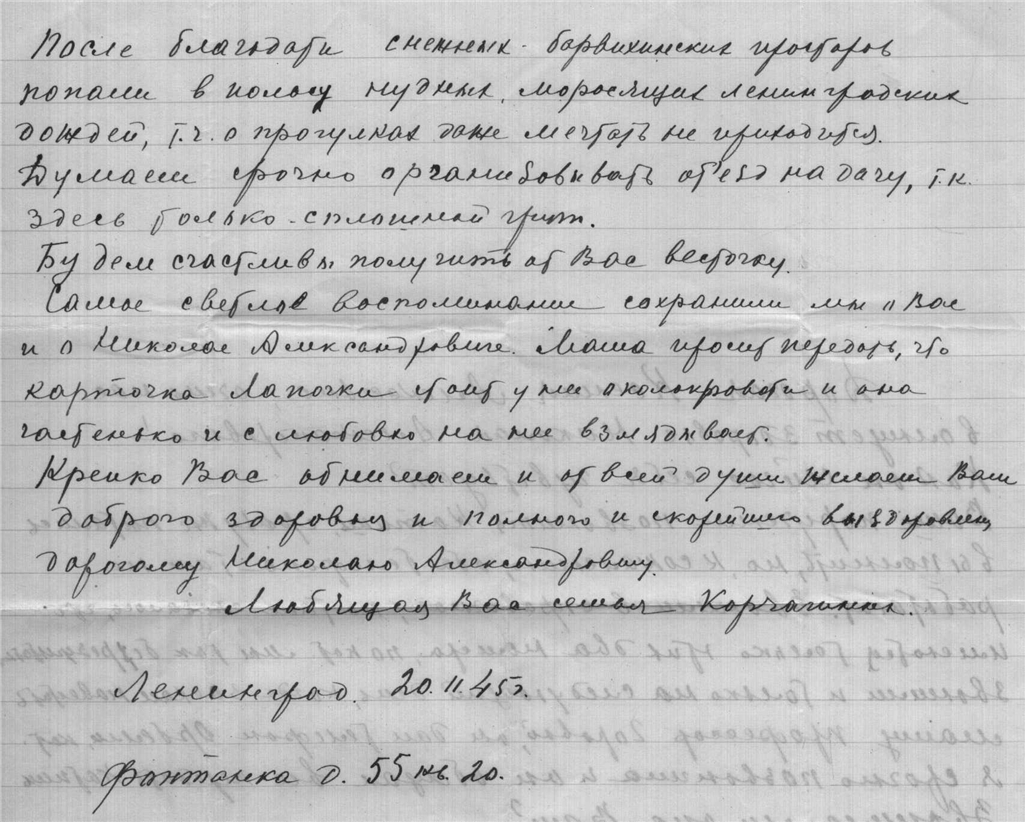 После благодати снежных барвихинских просторов
попали в полосу нудных, моросящих ленинградских
дождей, т.ч. о прогулках даже мечтать не приходится.
Думаем срочно организовывать от'езд на дачу, т.к.
здесь только сплошной грипп.
Будем счастливы получить от Вас весточку.
Самое светлое воспоминание сохранили мы о Вас
и о Николае Александровиче. Маша просит передать, что
карточка Лапочки стоит у ней около кровати и она
частенько и с любовью на нее взглядывает.
Крепко Вас обнимаем и от всей души желаем Вам
доброго здоровья и полного и скорейшего выздоровления
дорогому Николаю Александровичу.
Любящая Вас семья Корчагиных.
Ленинград. 20.II.45г.
Фонтанка д. 55 кв. 20.